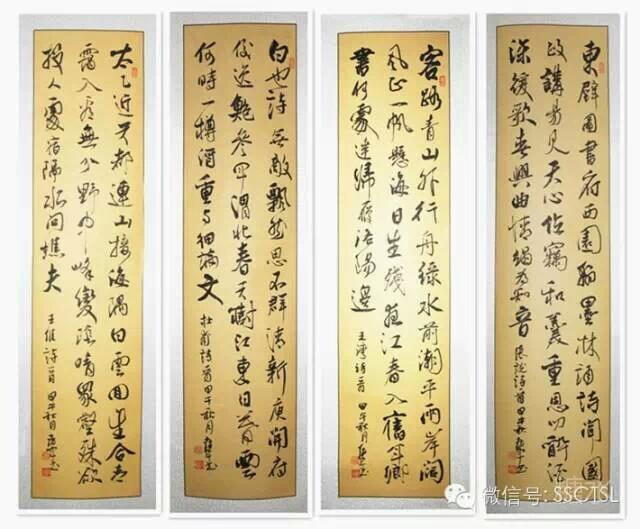 東壁圖書府西園翰墨林誦詩聞國
政講易見天心位竊和羹重恩叨醉酒
深緩歌春興曲情竭為知音
張說詩首甲午秋
客路青山外行舟綠水前潮平兩岸闊
風正一帆懸海日生殘夜江春入舊年鄉
書何處達歸雁洛陽邊
王灣詩一首甲午秋月
白也詩無敵飄然思不群清新庾開府
俊逸鮑參軍渭北春天樹江東日暮雲
何時一樽酒重與細論文
杜甫詩首甲午秋月
太乙近天都連山接海隅白雲回望合青
靄入看無分野中峰變陰晴眾壑殊欲
投人處宿隔水問樵夫
王維詩一首甲午秋月
微信号: SSCTSL